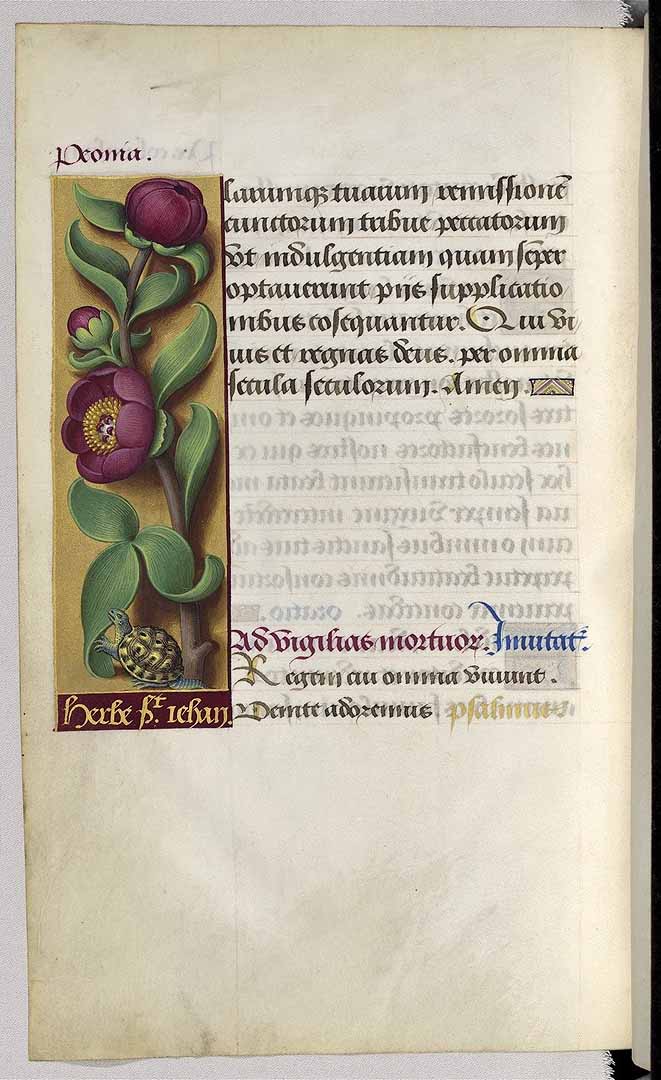 Peonia.
larumq3 tuarum remissionē
cunctorum tribue peccatorum
vt indulgentiam quam sēper
optauerunt pijs supplicatio
nibus cōsequantur. Qui vi
uis et regnas deus. per omnia
secula seculorum. Amen.
Ad vigilias mortuor. Inuitat.
Regem cui omnia viuunt.
herbe St. iehan.
Venite adoremus psalmus